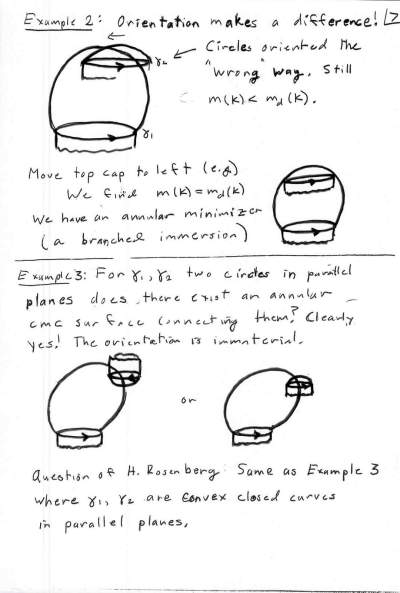 Example 2: Orientation makes a difference! 7
γ₂ ← Circles oriented the
"wrong" way. Still
m(k) < m_d(k).
γ₁
Move top cap to left (e.g)
We find m(k) = m_d(k)
We have an annular minimizer
(a branched immersion)
Example 3: For γ₁, γ₂ two circles in parallel
planes does there exist an annular
cmc surface connecting them? Clearly
yes! The orientation is immaterial.
or
Question of H. Rosenberg: Same as Example 3
where γ₁, γ₂ are convex closed curves
in parallel planes.